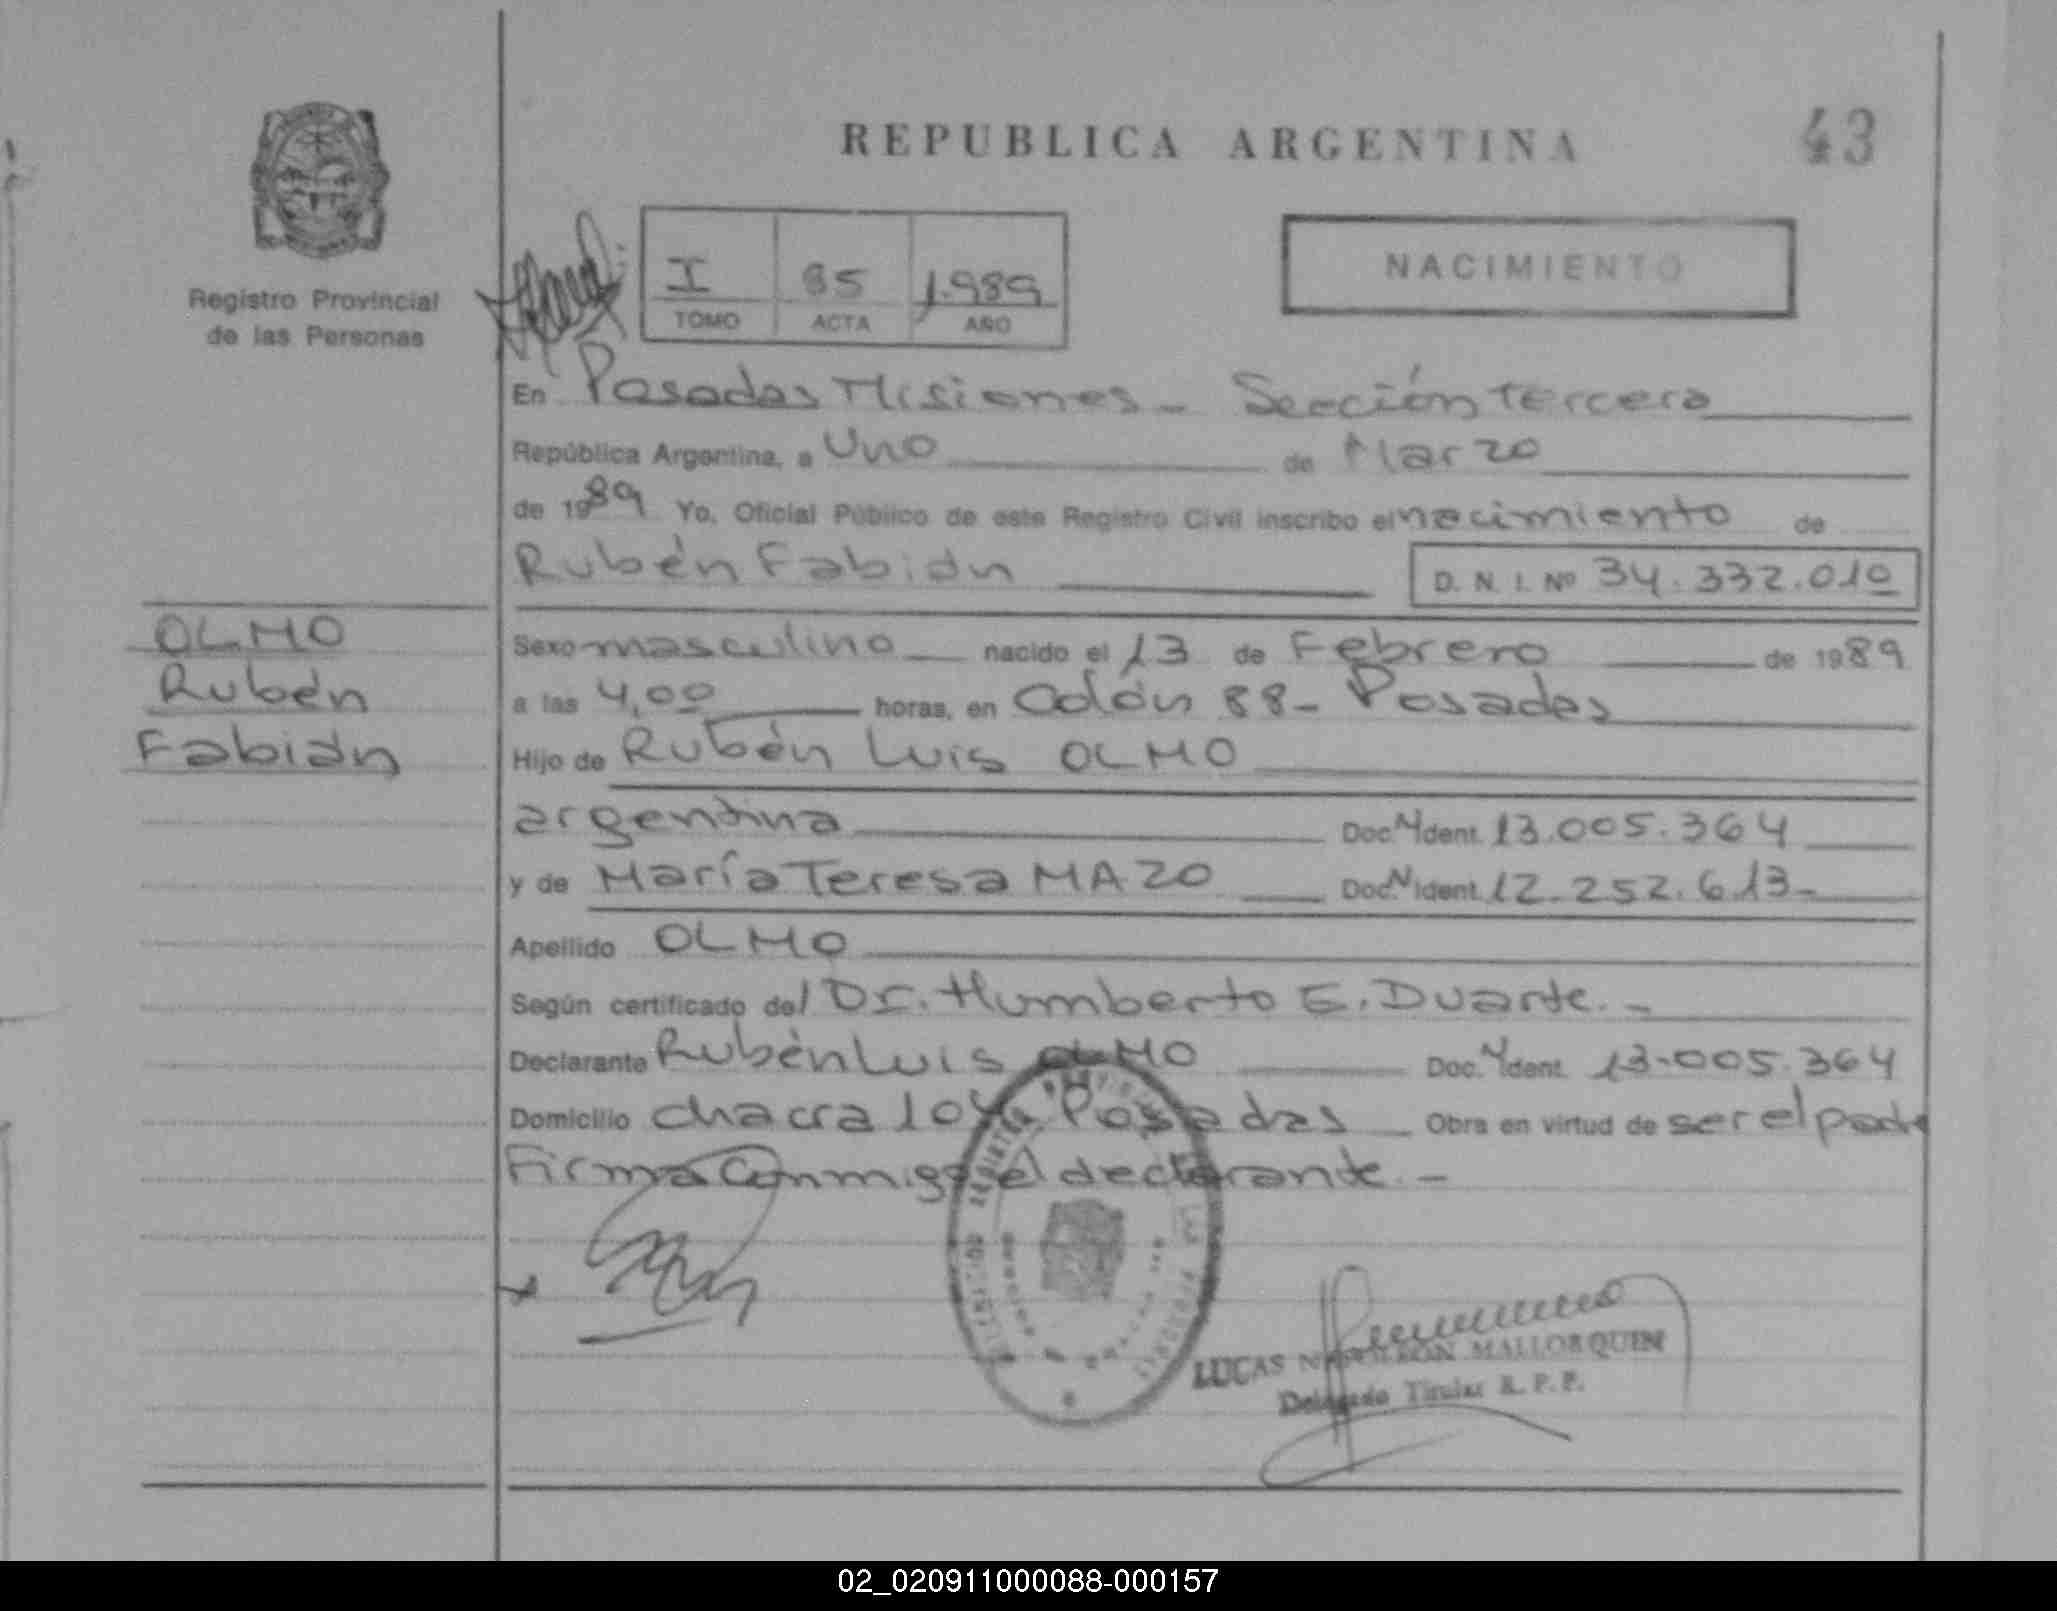 REPUBLICA ARGENTINA
43
Registro Provincial
de las Personas
I 85 1.989
TOMO ACTA AÑO
NACIMIENTO
En Posadas Misiones - Sección tercera
República Argentina, a Uno de Marzo
de 1989 Yo, Oficial Público de este Registro Civil inscribo el nacimiento de
Rubén Fabián D. N. I. Nº 34.332.010
OLMO
Rubén
Fabián
Sexo masculino nacido el 13 de Febrero de 1989
a las 4,00 horas, en Colón 88- Posadas
Hijo de Rubén Luis OLMO
argentina Doc. N Ident. 13.005.364
y de María Teresa MAZO Doc. N Ident. 12.252.613-
Apellido OLMO
Según certificado del Dr. Humberto E. Duarte.-
Declarante Rubén Luis OLMO Doc. N Ident. 13.005.364
Domicilio chacra 104 Posadas Obra en virtud de ser el padre
Firma Conmigo el declarante.-
LUCAS NAPOLEON MALLORQUIN
Delegado Titular R. P. P.
02_020911000088-000157